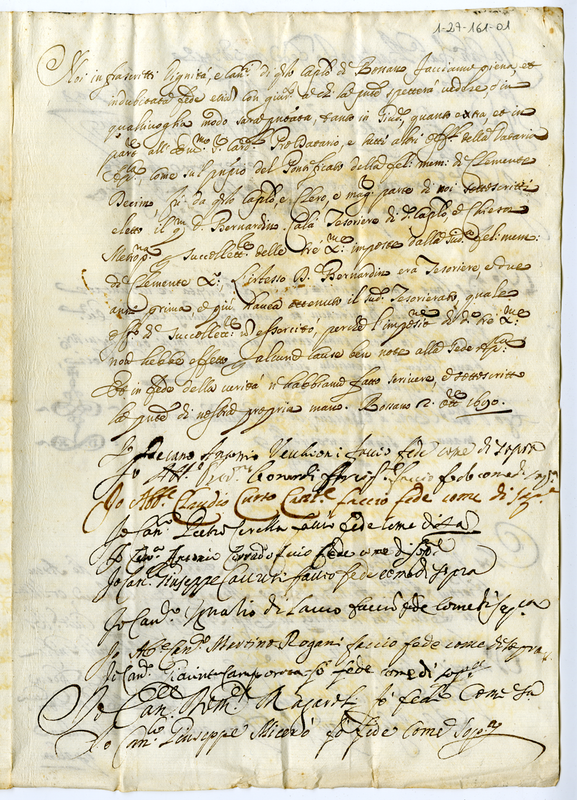 1-27-161-01
Noi infrascritti Dignità, e Can.ci di q.sto Cap.lo di Rossano facciamo piena, et
indubitata fede etiam con giur.to à chi la pnte spetterà vedere, ò in
qualsivoglia modo sarà pntata, tanto in Jud.o quanto extra, et in
part.e all' Em.mo S. Card.le Pro Datario, e tutti altri Off.li della Dataria
Ap.lica, come sul prin.pio del Pontificato della fel: mem: di Clemente
Decimo, fù da q.sto Cap.lo, e Clero, e mag.r parte di noi sottoscritti
eletto il q.m D. Bernardino Calà Tesoriere di d.o Cap.lo, e Chiesa
Metrop.na p succollett.e delle trè X.me imposte dalla sud.a fel: mem:
di Clemente X.o L'istesso D. Bernardino era Tesoriere, e due
anni prima, e più haveva ottenuto il sud.o Tesorierato, quale
off.o di succollett.e n essercitò, perche l'imposit.e di d.e trè X.me
non hebbe effetto p alcune cause ben note alla Sede Ap.ca
Et in fede della verità n'habbiamo fatto scrivere, e sottoscritto
la pnte di nostre proprie mano. Rossano 2. 1690.
Io Antonio faccio fede come di sopra
Io Ab.e Leonardi faccio fede come di sop.a
Io Abb.e Claudio Curto Cant.e faccio fede come di sop.a
Io Can.co Pietro Cerella faccio fede come di s.a
Io Can.co Antonio Corrado faccio fede come di sop.a
Io Can.co Giuseppe faccio fede come di sopra
Io Can.co Ignatio di Lauro faccio fede come di sopra
Io Ab.e Can.co Martino Rogani faccio fede come di sopra
Io Can.co fò fede come di sop.a
Io Can.co fò fede come s.a
Io Can.co Giuseppe Miceli fò fede come sop.a